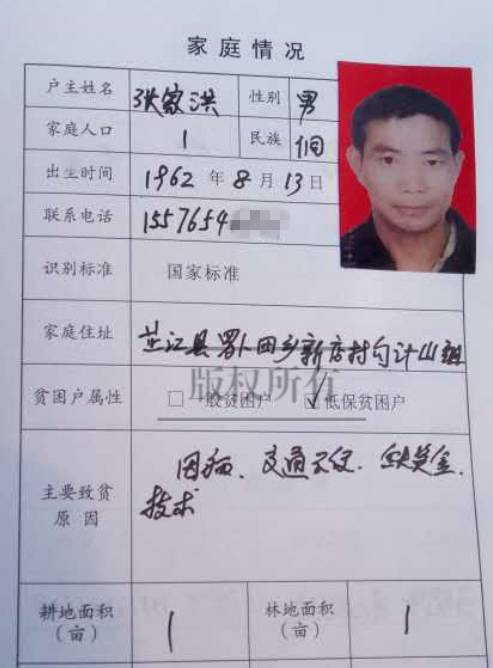 家庭情况
户主姓名 张家洪 性别 男
家庭人口 1 民族 侗
出生时间 1962 年 8 月 13 日
联系电话 1557654
识别标准 国家标准
家庭住址 芷江县罗卜田乡新店村勾计山组
版权所有
贫困户属性 □ 一般贫困户 ☑ 低保贫困户
因病、交通不便、缺资金、
主要致贫 技术
原因
耕地面积 1 林地面积 1
（亩） （亩）